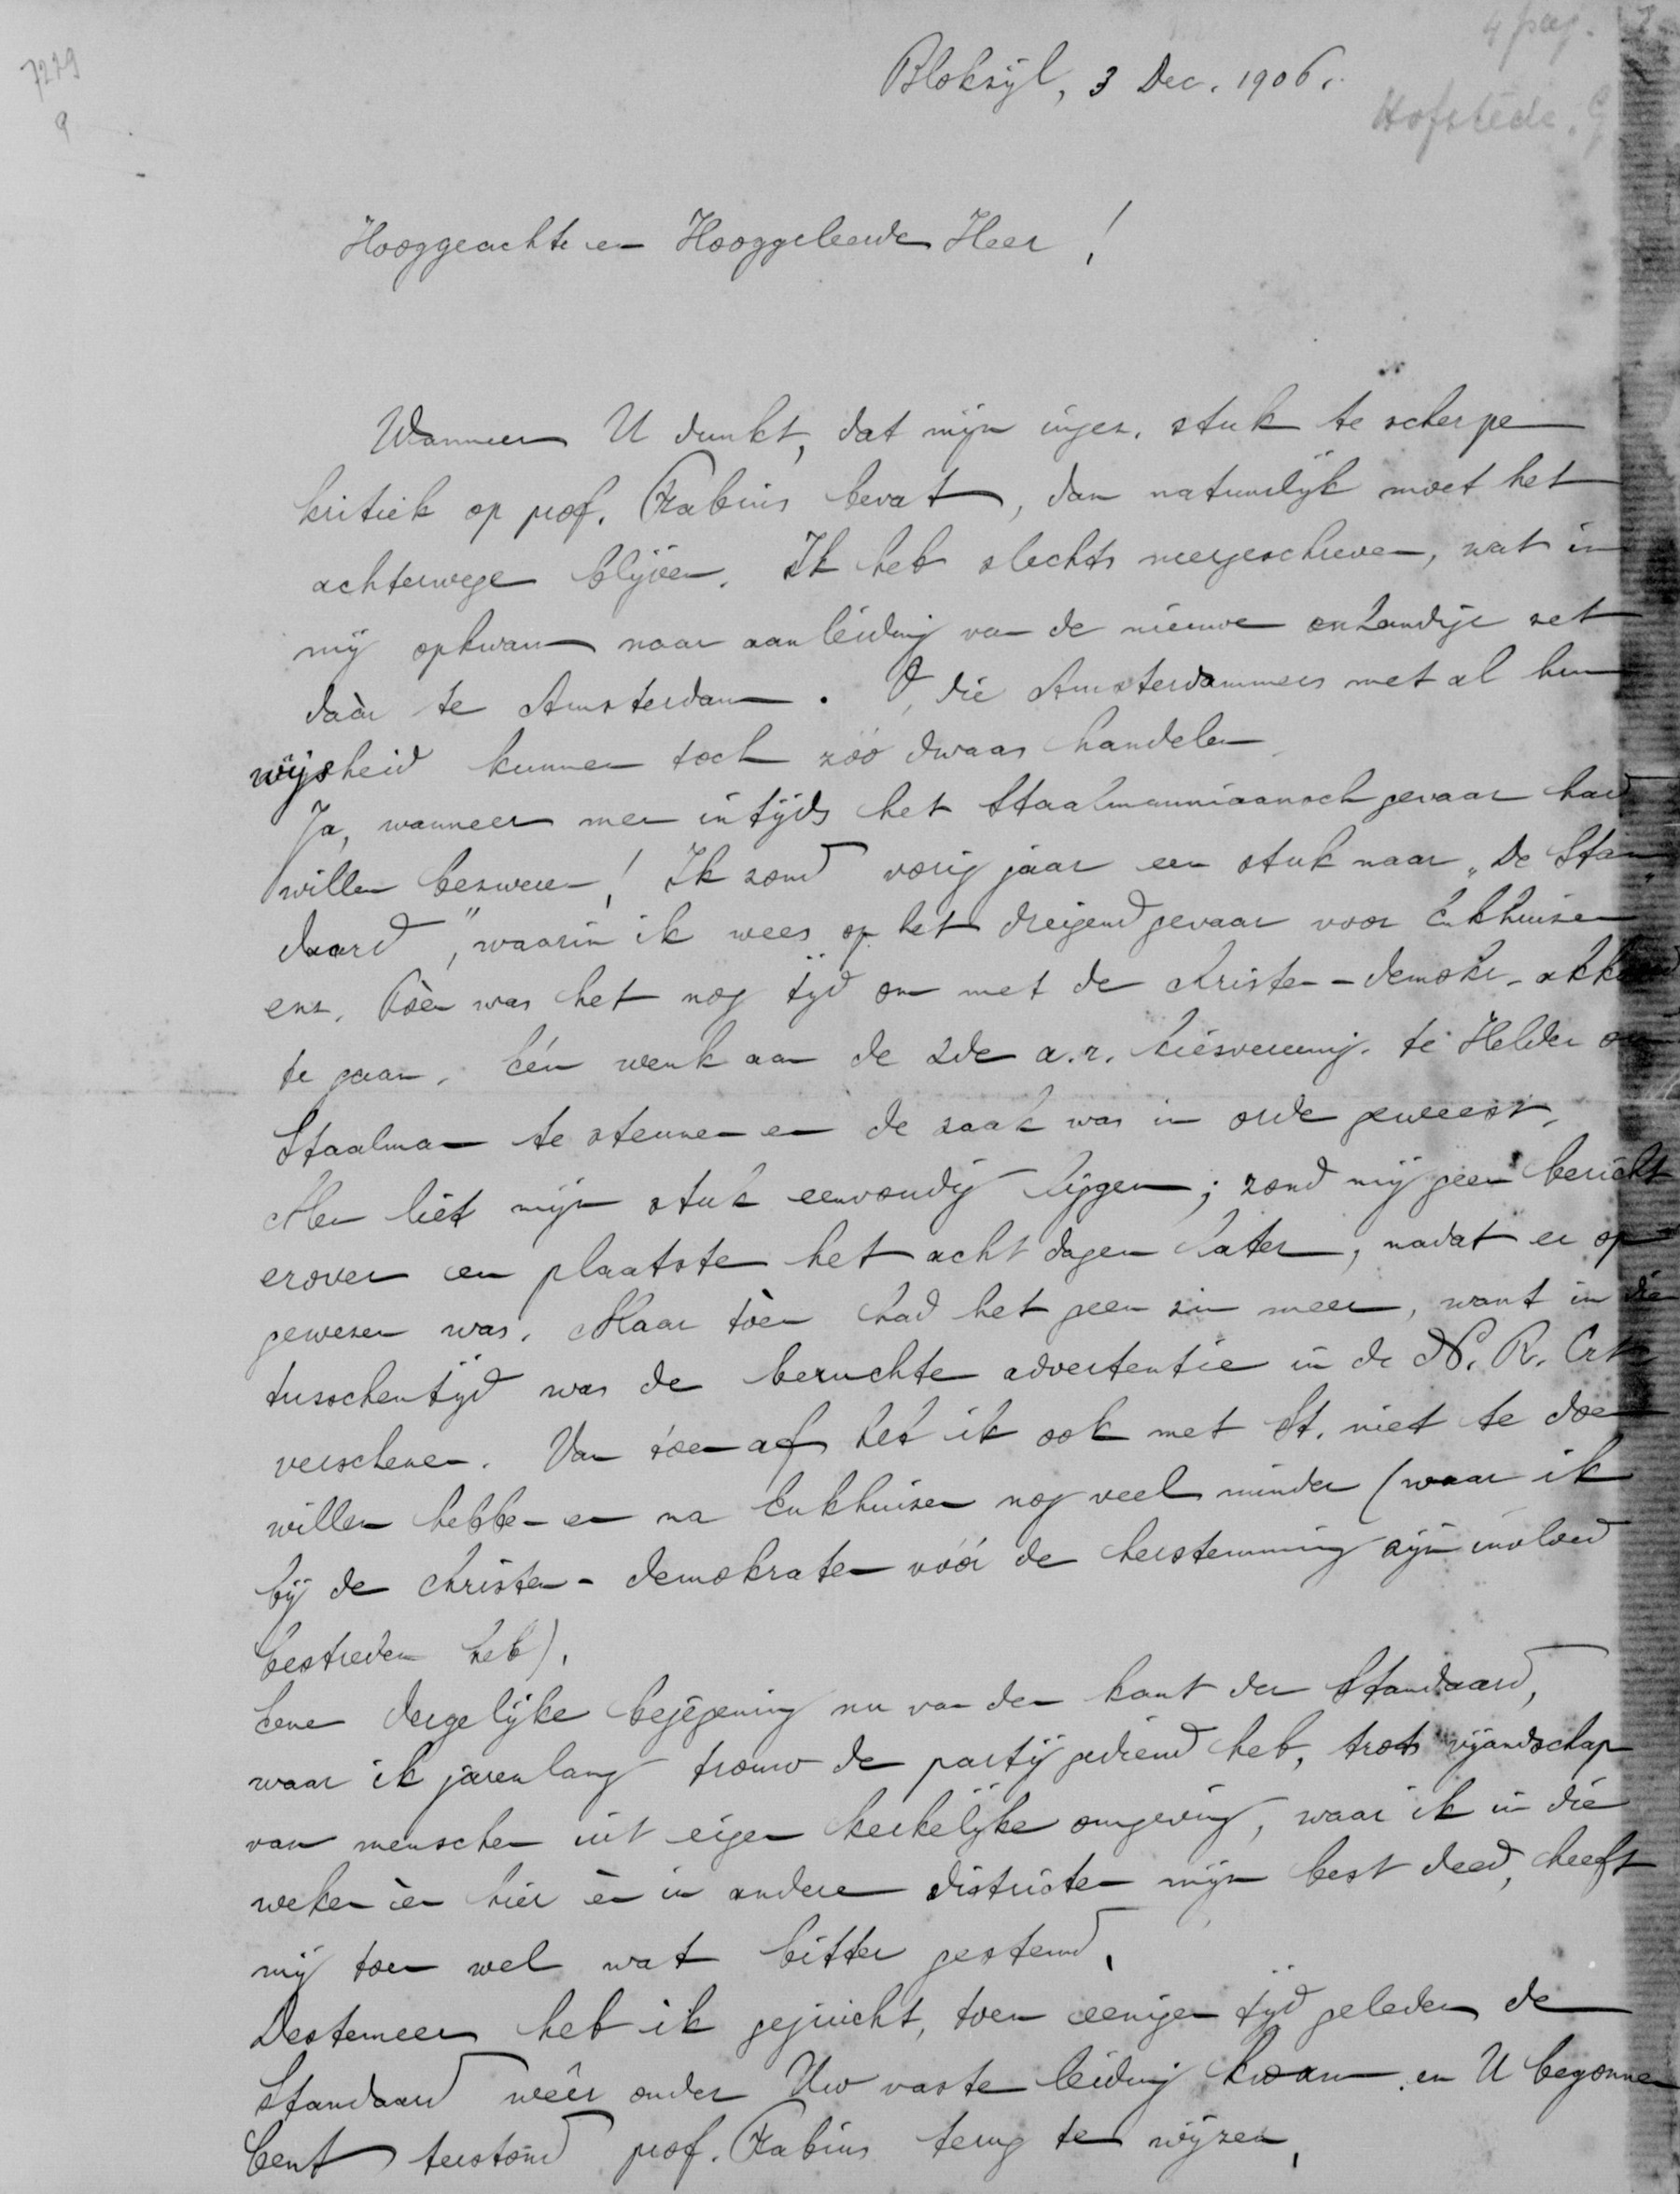 7279
9
4 pag.
Hofstede, G
Blokzijl, 3 Dec. 1906.
Hooggeachte en Hooggeleerde Heer!
Wanneer U dunkt, dat mijn ingez. stuk te scherpe
kritiek op prof. Fabius bevat, dan natuurlijk moet het
achterwege blijven. Ik heb slechts neergeschreven, wat in
mij opkwam naar aanleiding van de nieuwe onhandige zet
daàr te Amsterdam. O, die Amsterdammers met al hun
wijsheid kunnen toch zóó dwaas handelen
Ja, wanneer men intijds het Staalmanniaansch gevaar had
willen bezweren! Ik zond vorig jaar een stuk naar „De Stan„
daard", waarin ik wees op het dreigend gevaar voor Enkhuizen
enz. Tòen was het nog tijd om met de Christen-demokr.
te gaan. Eén wenk aan de 2de a.r. kiesvereenig. te Helder om
Staalman te steunen en de zaak was in orde geweest.
Men liet mijn stuk eenvoudig liggen; zond mij geen bericht
erover en plaatste het acht dagen later, nadat er op
gewezen was. Maar tòen had het geen zin meer, want in die
tusschentijd was de beruchte advertentie in de N. R. Crt.
verschenen. Van toen af heb ik ook met St. niet te doen
willen hebben en na Enkhuizen nog veel minder (waar ik
bij de Christen-demokraten vóór de herstemming zijn invloed
bestreden heb).
Eene dergelijke bejegening nu van den kant der Standaard,
waar ik jarenlang trouw de partij gediend heb, trots vijandschap
van menschen uit eigen kerkelijke omgeving, waar ik in die
weken èn hier èn in andere districten mijn best deed, heeft
mij toen wel wat bitter gestemd.
Destemeer heb ik gejuicht, toen eenigen tijd geleden de
Standaard wêer onder Uw vaste leiding kwam en U begonnen
bent terstond prof. Fabius terug te wijzen.